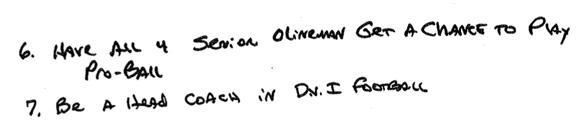 6. HAVE ALL 4 SENIOR OLINEMAN GET A CHANCE TO PLAY
PRO-BALL
7. BE A HEAD COACH IN DIV. I FOOTBALL